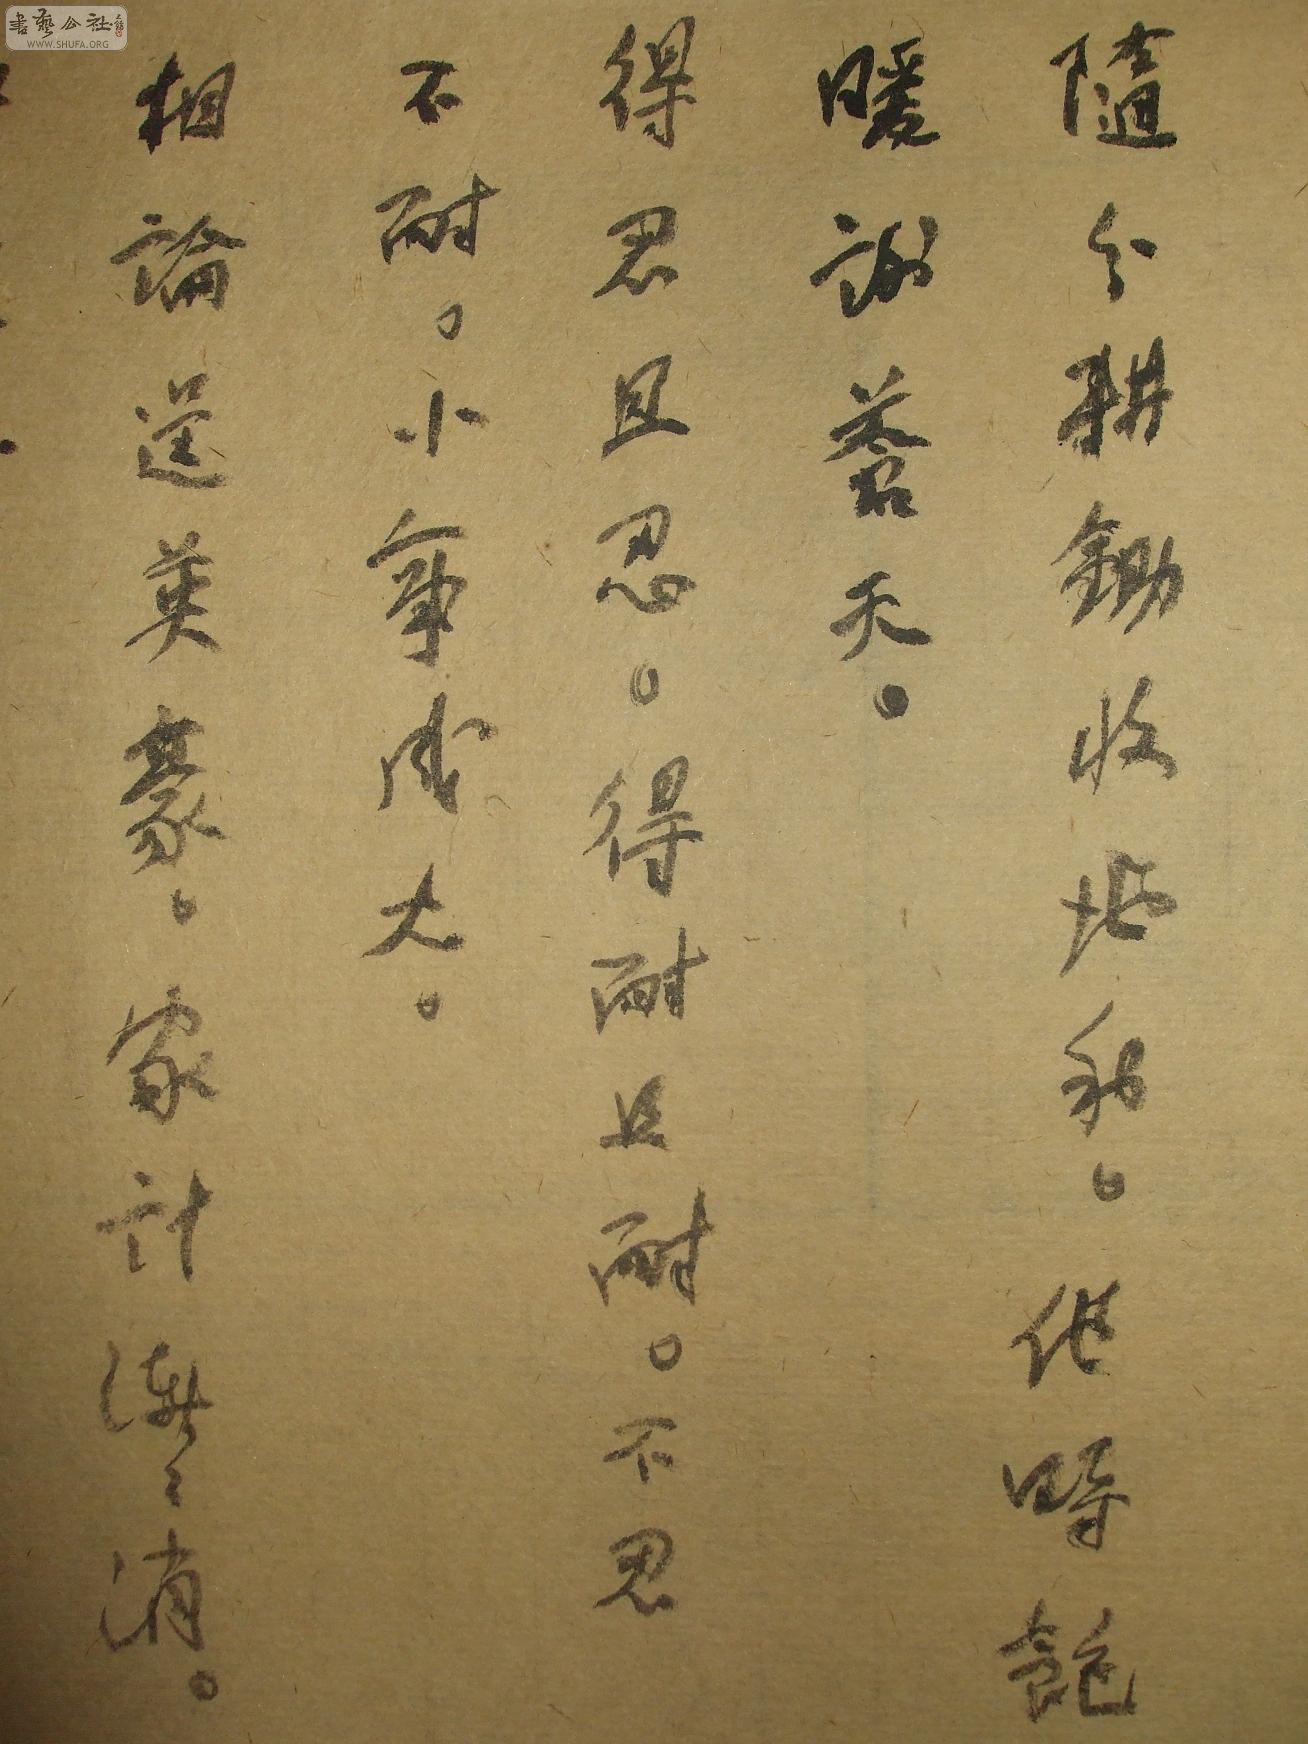 隨分耕鋤收地利。他時飽
暖謝蒼天。
得忍且忍。得耐且耐。不忍
不耐。小事成大。
相論逞英豪。家計漸〻消。
書藝公社
WWW.SHUFA.ORG